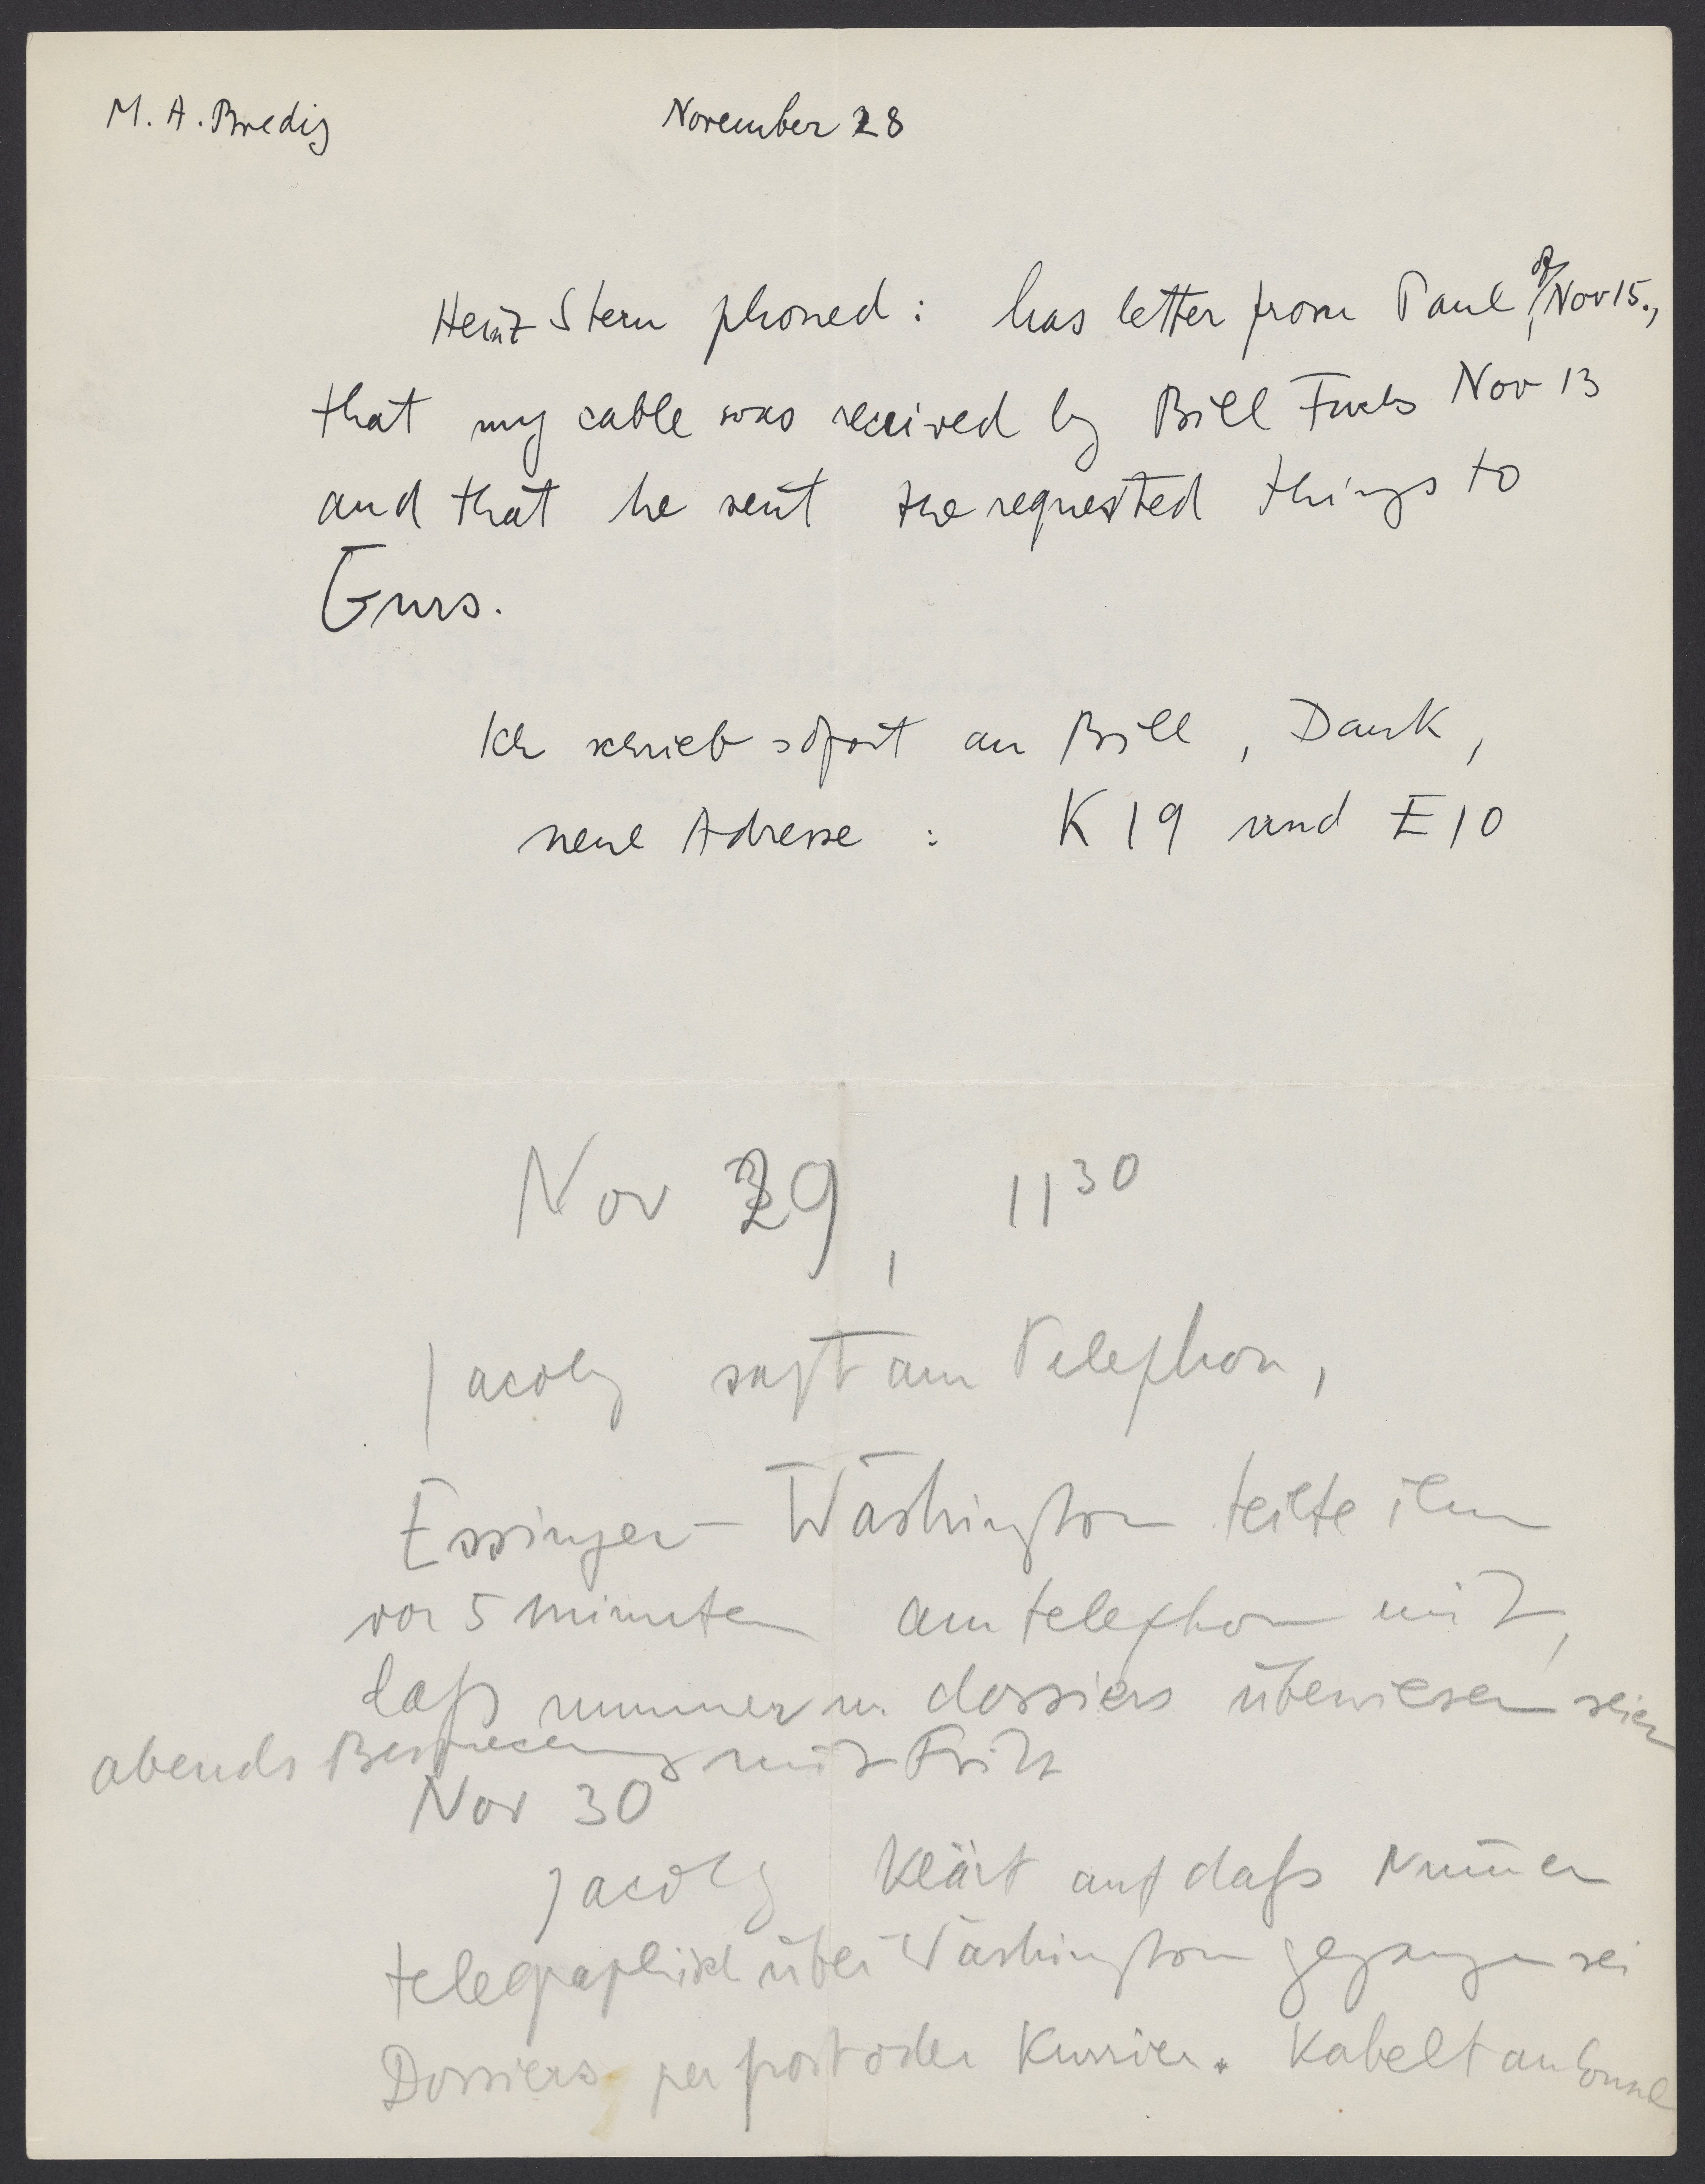 M. A. Bredig November 28
Heinz Stern phoned: has letter from Paul, of Nov 15.,
that my cable was received by Bill Fuchs Nov 13
and that he sent the requested things to
Gurs.
Ich schrieb sofort an Bill, Dank,
neue Adresse: K 19 und E 10
Nov 29, 11 30
Jacoby sagt am Telephon,
Essinger - Washington teilte ihm
vor 5 minuten am telephon mit,
daß nummer u. dossiers überwiesen seien
abends Besprechung mit Fritz
Nov 30
Jacoby klärt auf daß Num̄er
telegraphisch über Washington gegangen sei
Dossiers per post oder Kurrier. Kabelt an